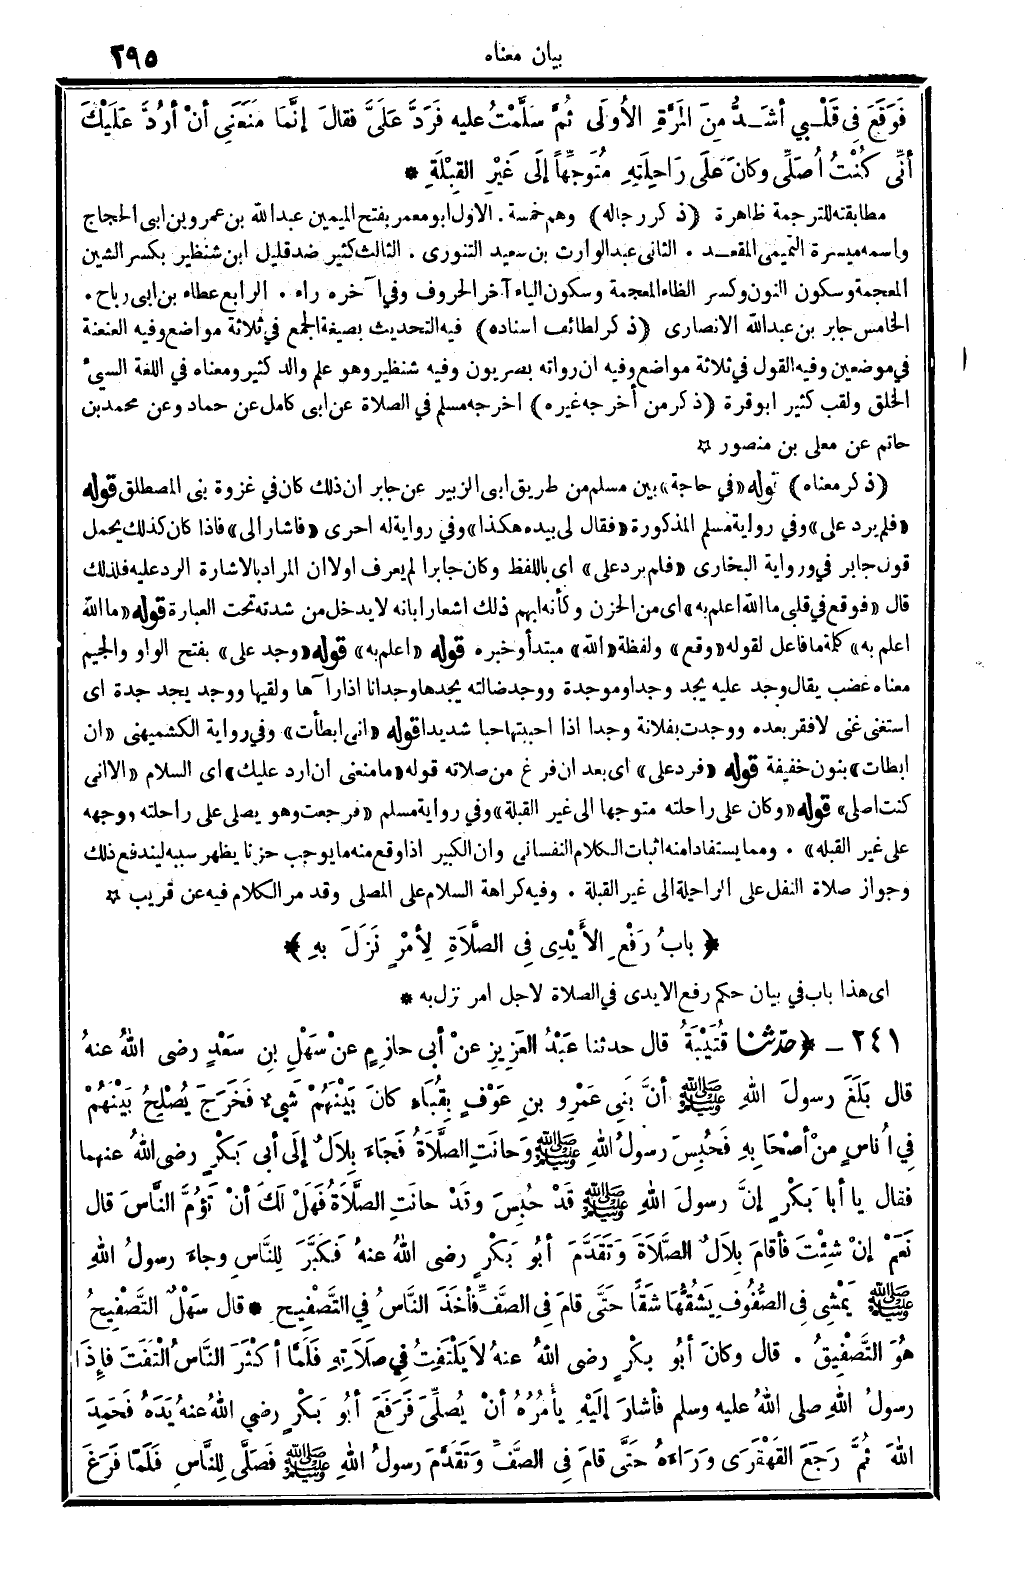 بيان معناه ٢٩٥
فَوَقَعَ فِي قَلْـبِي أشَـدُّ مِنَ المَرَّةِ الأُولَى ثُمَّ سَلَّمْتُ عليهِ فَرَدَّ عَلَىَّ فقالَ إنَّمَا مَنَعَنِي أنْ أرُدَّ عَلَيْكَ
أنِّي كُنْتُ أُصَلِّي وكانَ عَلَى رَاحِلَتِهِ مُتَوَجِّهاً إلَى غَيْرِ القِبْلَةِ *
مطابقته للترجمة ظاهرة (ذكر رجاله) وهم خمسة . الاول ابو معمر بفتح الميمين عبدالله بن عمرو بن ابى الحجاج
واسمه ميسرة التميمى المقعـد . الثانى عبدالوارث بن سعيد التنورى . الثالث كثير ضد قليل ابن شنظير بكسر الشين
المعجمة وسكون النون وكسر الظاء المعجمة وسكون الياء آخر الحروف وفي آخره راء . الرابع عطاء بن ابى رباح .
الخامس جابر بن عبدالله الانصارى (ذكر لطائف اسناده) فيه التحديث بصيغة الجمع في ثلاثة مواضع وفيه العنعنة
في موضعين وفيه القول في ثلاثة مواضع وفيه ان رواته بصريون وفيه شنظير وهو علم والد كثير ومعناه في اللغة السيء
الخلق ولقب كثير ابو قرة (ذكر من أخرجه غيره) اخرجه مسلم في الصلاة عن ابى كامل عن حماد وعن محمد بن
حاتم عن معلى بن منصور ☆
(ذكر معناه) قوله «في حاجة» بين مسلم من طريق ابى الزبير عن جابر ان ذلك كان في غزوة بنى المصطلق قوله
«فلم يرد على» وفي رواية مسلم المذكورة «فقال لى بيده هكذا» وفي رواية له اخرى «فاشار الى» فاذا كان كذلك يحمل
قول جابر في رواية البخارى «فلم يرد على» اى باللفظ وكان جابرا لم يعرف اولا ان المراد بالاشارة الرد عليه فلذلك
قال «فوقع في قلبى ما الله اعلم به» اى من الحزن وكأنه ابهم ذلك اشعارا بانه لا يدخل من شدته تحت العبارة قوله «ما الله
اعلم به» كلمة ما فاعل لقوله «وقع» ولفظة «الله» مبتدأ وخبره قوله «اعلم به» قوله «وجد على» بفتح الواو والجيم
معناه غضب يقال وجد عليه يجد وجدا وموجدة ووجد ضالته يجدها وجدانا اذا رآها ولقيها ووجد يجد جدة اى
استغنى غنى لا فقر بعده ووجدت بفلانة وجدا اذا احببتها حبا شديدا قوله «انى ابطأت» وفي رواية الكشميهنى «ان
ابطات» بنون خفيفة قوله «فرد على» اى بعد ان فرغ من صلاته قوله «ما منعنى ان ارد عليك» اى السلام «الا انى
كنت اصلى» قوله «وكان على راحلته متوجها الى غير القبلة» وفي رواية مسلم «فرجعت وهو يصلى على راحلته ووجهه
على غير القبلة» . ومما يستفاد منه اثبات الكلام النفسانى وان الكبير اذا وقع منه ما يوجب حزنا يظهر سببه ليندفع ذلك
وجواز صلاة النفل على الراحلة الى غير القبلة . وفيه كراهة السلام على المصلى وقد مر الكلام فيه عن قريب ☆
﴿ بابُ رَفْعِ الأَيْدِى فِي الصَّلاَةِ لِأمْرٍ نَزَلَ بِهِ ﴾
اى هذا باب في بيان حكم رفع الايدى في الصلاة لاجل امر نزل به *
٢٤١ ـ ﴿ حدثنا قُتَيْبَةُ قال حدثنا عَبْدُ العَزِيزِ عنْ أبى حازِمٍ عنْ سَهْلِ بنِ سَعْدٍ رضى اللهُ عنهُ
قال بَلَغَ رسولَ اللهِ ﷺ أنَّ بَنِي عَمْرِو بنِ عَوْفٍ بِقُبَاءٍ كانَ بَيْنَهُمْ شَيْءٌ فَخَرَجَ يُصْلِحُ بَيْنَهُمْ
فِي أُناسٍ مِنْ أصْحَابِهِ فَحُبِسَ رسولُ اللهِ ﷺ وَحانَتِ الصَّلاَةُ فَجَاءَ بِلاَلٌ إلَى أبى بَكْرٍ رضى اللهُ عنهما
فقال يا أبا بَكْرٍ إنَّ رسولَ اللهِ ﷺ قَدْ حُبِسَ وقَدْ حانَتِ الصَّلاَةُ فَهَلْ لكَ أنْ تَؤُمَّ النَّاسَ قال
نَعَمْ إنْ شِئْتَ فَأقامَ بِلاَلٌ الصَّلاَةَ وَتَقَدَّمَ أبُو بَكْرٍ رضى اللهُ عنهُ فَكَبَّرَ لِلنَّاسِ وجاءَ رسولُ اللهِ
ﷺ يَمْشِى فِي الصُّفُوفِ يَشُقُّهَا شَقًّا حَتَّى قامَ فِي الصَّفِّ فَأخَذَ النَّاسُ فِي التَّصْفِيحِ * قال سَهْلٌ التَّصْفِيحُ
هُوَ التَّصْفِيقُ . قال وكانَ أبُو بكْرٍ رضى اللهُ عنهُ لاَ يَلْتَفِتُ فِي صَلاَتِهِ فَلَمَّا أكْثَرَ النَّاسُ الْتَفَتَ فإِذَا
رسولُ اللهِ صلى اللهُ عليه وسلم فأشارَ إلَيْهِ يأْمُرُهُ أنْ يُصَلِّىَ فَرَفَعَ أبُو بَكْرٍ رضي اللهُ عنهُ يَدَهُ فَحَمِدَ
اللهَ ثُمَّ رَجَعَ القَهْقَرَى وَرَاءَهُ حَتَّى قامَ فِي الصَّفِّ وَتَقَدَّمَ رسولُ اللهِ ﷺ فَصَلَّى لِلنَّاسِ فَلَمَّا فَرَغَ